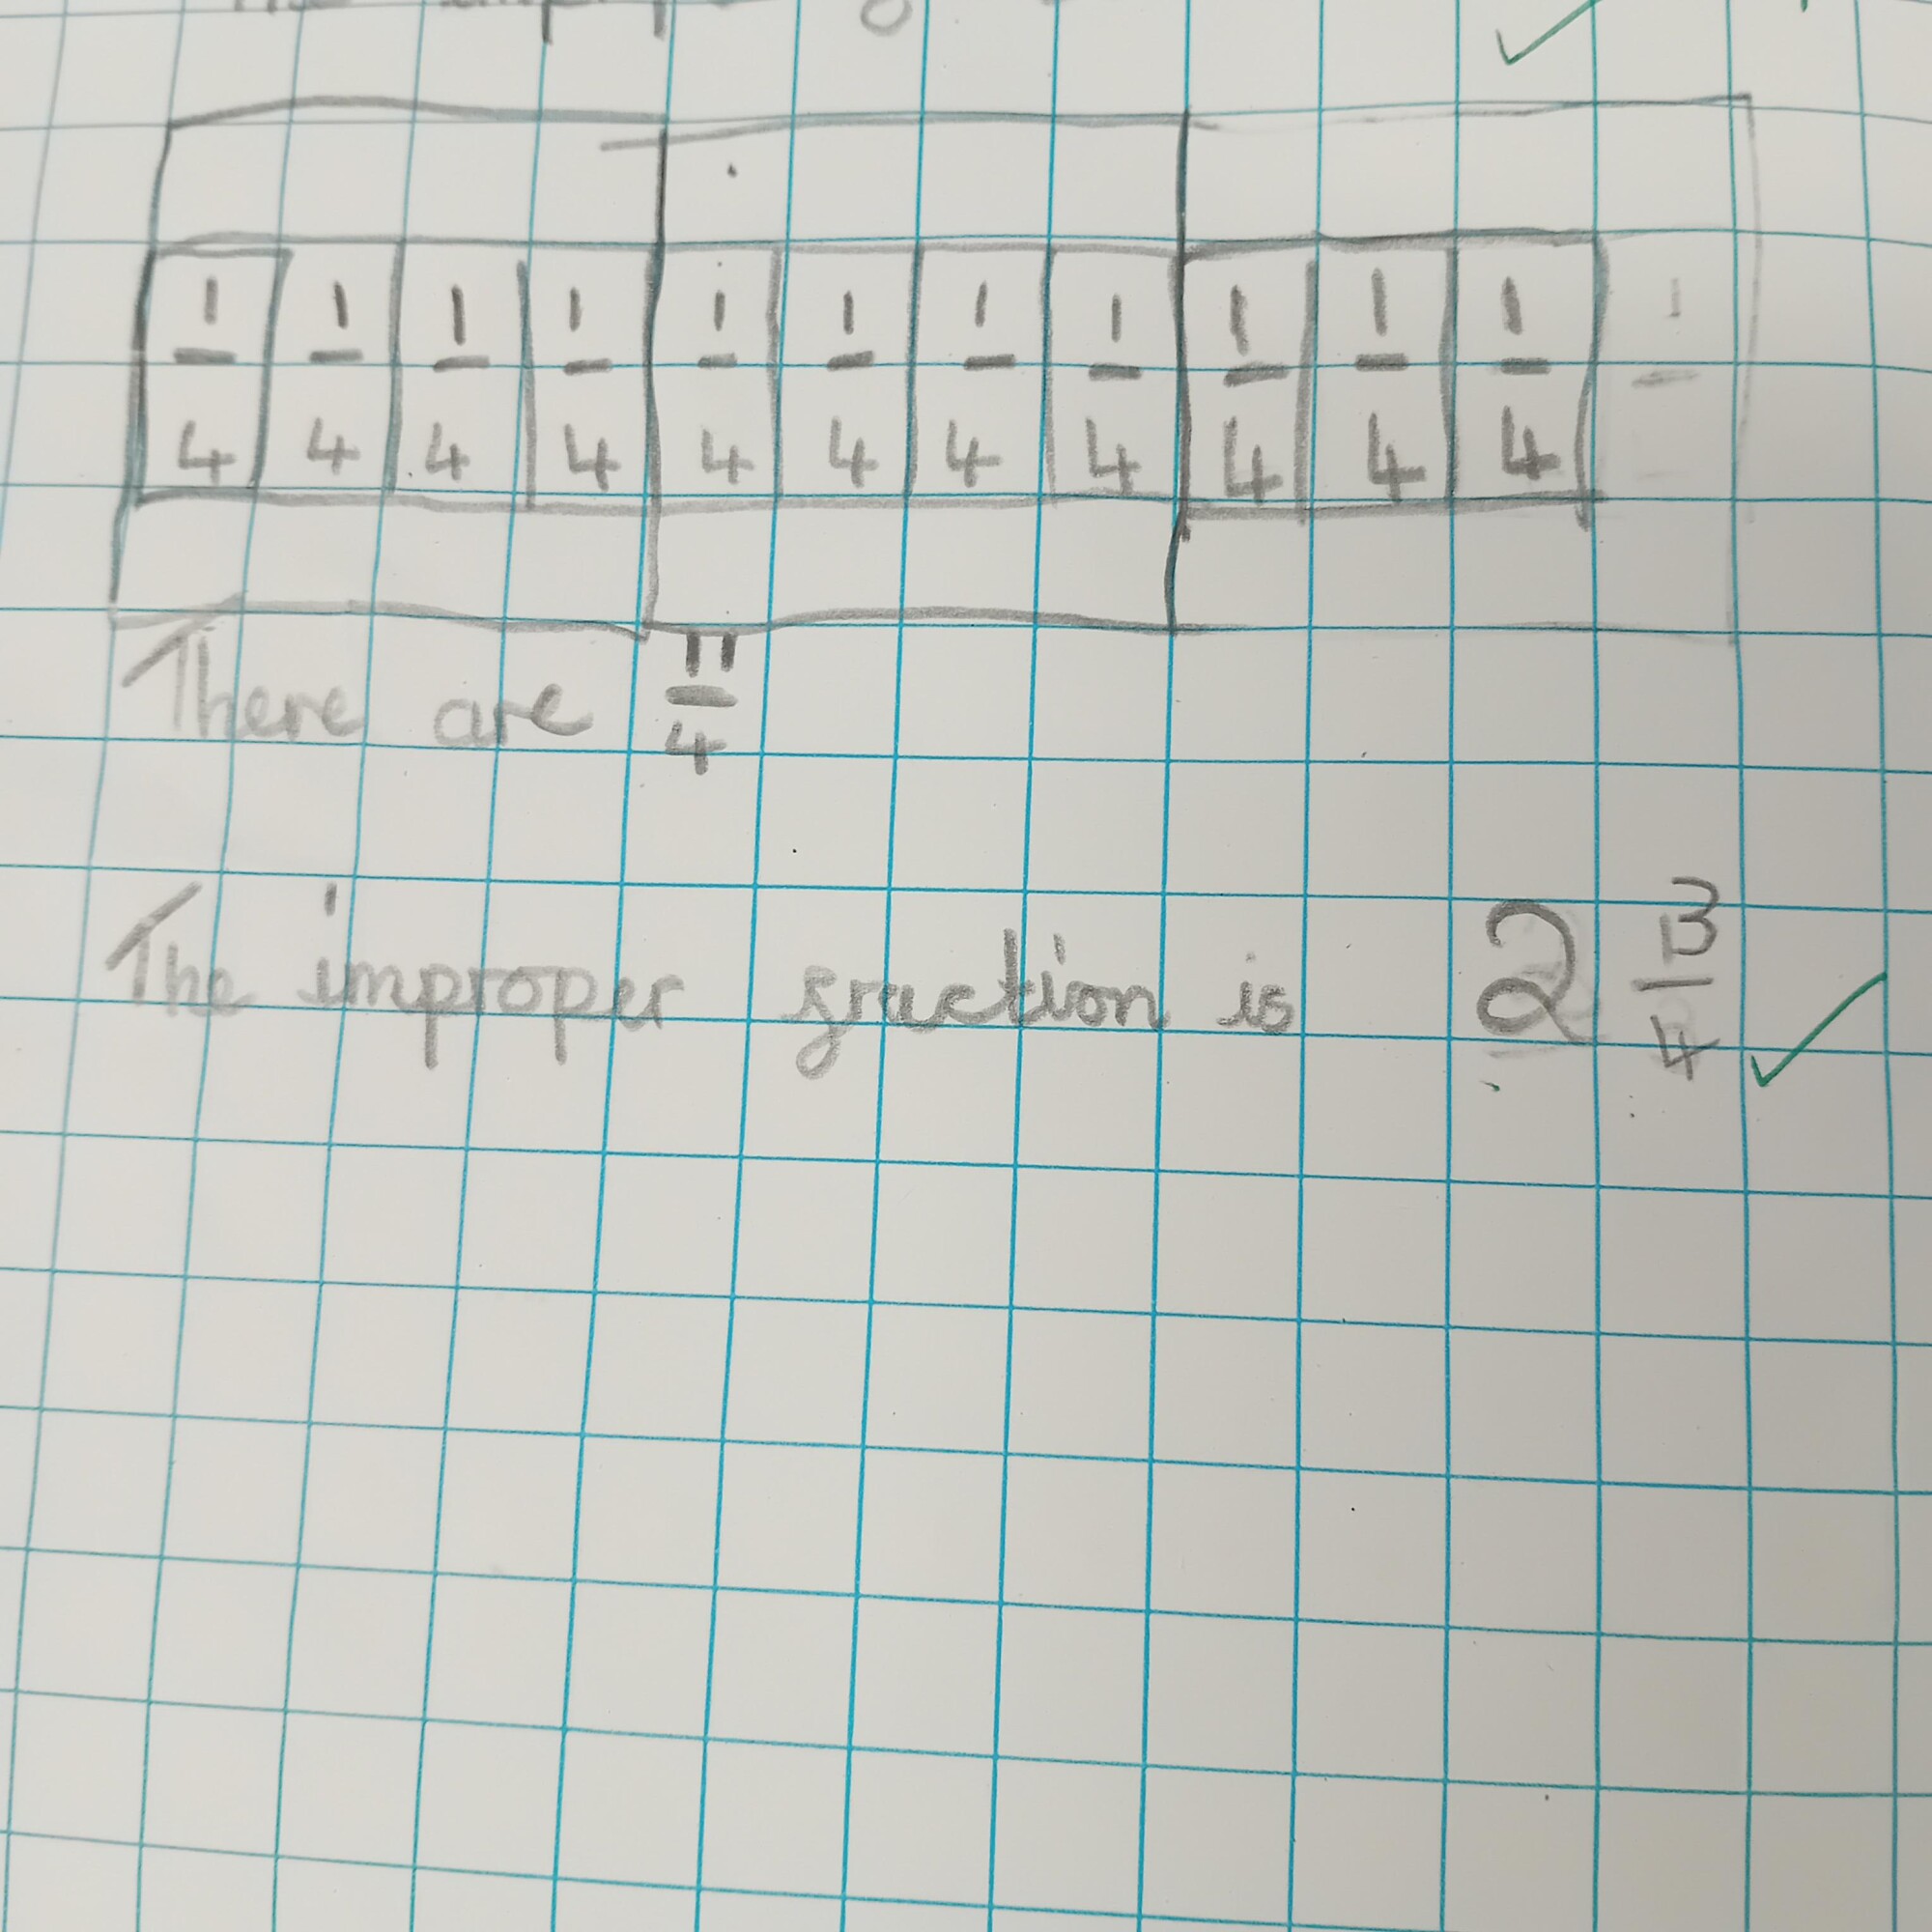 1/4 1/4 1/4 1/4 1/4 1/4 1/4 1/4 1/4 1/4 1/4
There are 11/4
The improper fraction is 2 3/4